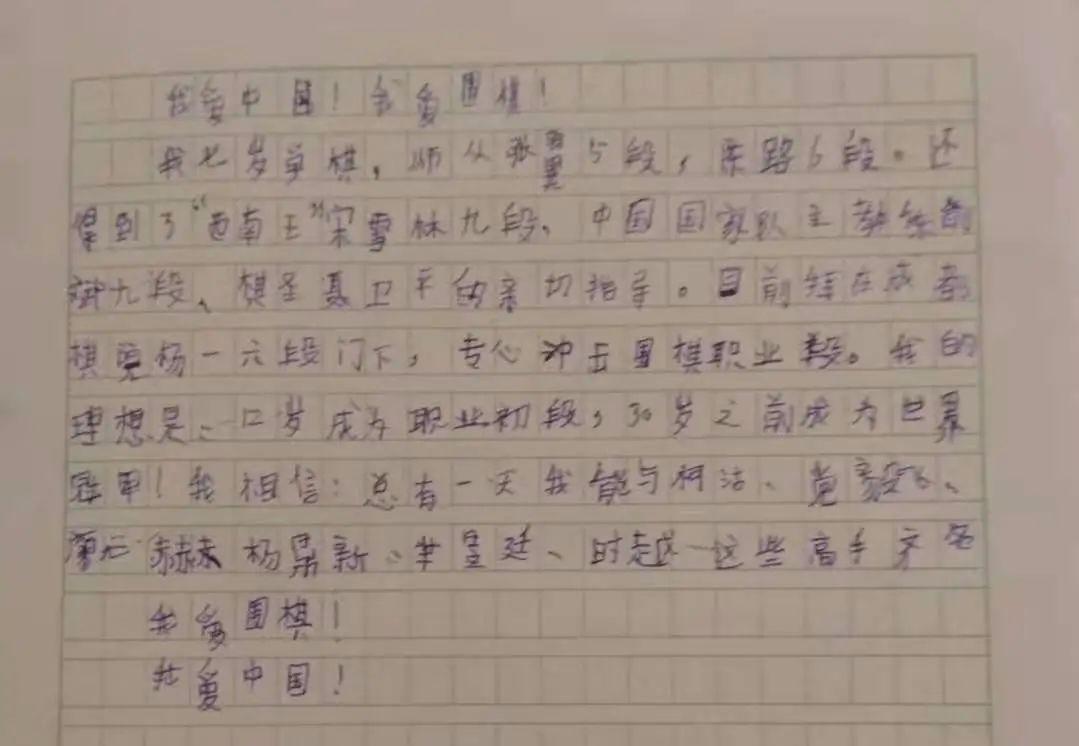 我爱中国！我爱围棋！
我七岁学棋，师从张翼5段，陈路6段。还
得到了“西南王”宋雪林九段、中国国家队主教练俞
斌九段、棋圣聂卫平的亲切指导。目前拜在成都
棋院杨一六段门下，专心冲击围棋职业段。我的
理想是：12岁成为职业初段，30岁之前成为世界
冠军！我相信：总有一天我能与柯洁、党毅飞、
杨鼎新、芈昱廷、时越这些高手齐名
我爱围棋！
我爱中国！